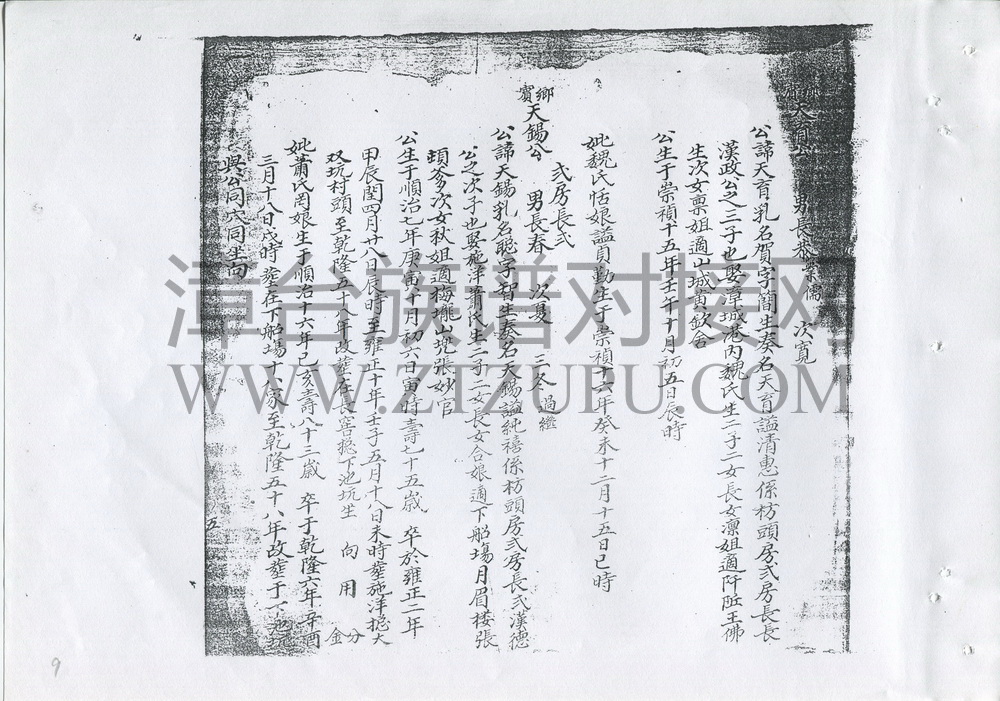 天育公 男長恭業儒 次寬
公諱天育乳名賀字蘭生奏名天育謚清惠係枋頭房弍房長長
漢政公之三子也娶漳城巷內魏氏生二子二女長女凜姐適阡坵王佛
生次女禀姐適山城黃欽舍
公生于崇禎十五年壬午十月初五日辰時
妣魏氏恬娘謚貞勤生于崇禎十六年癸未十二月十五日巳時
弍房長弍
鄉賓天錫公 男長春 次夏 三冬過繼
公諱天錫乳名聰字智生奏名天錫謚純禧係枋頭房弍房長弍漢德
公之次子也娶施洋蕭氏生二子二女長女合娘適下船塲月眉楼張
頊爹次女秋姐適梅壠山兜張妙官
公生于順治七年庚寅十月初六日寅時壽七十五歲 卒於雍正二年
甲辰閏四月廿八日辰時至雍正十年壬子五月十八日未時塟施洋捴大
双坑村頭至乾隆五十八年故塟在長窖捴下池坑坐 向 用 分金
妣蕭氏罔娘生于順治十六年己亥壽八十三歲 卒于乾隆六年辛酉
三月十八日戌時 塟在下船塲十八家至乾隆五十八年故塟于下池坑
與公同穴同坐向
五
9
漳台族谱对接网
WWW.ZTZUPU.COM